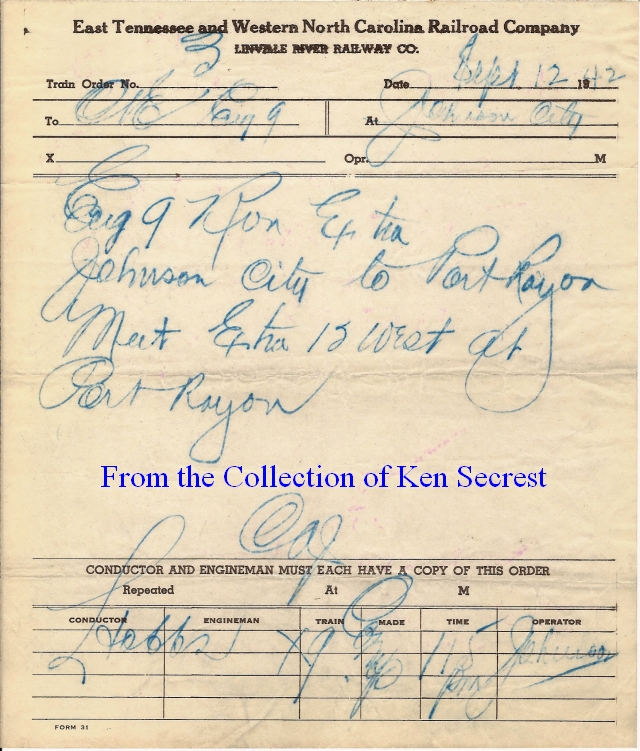 East Tennessee and Western North Carolina Railroad Company
LINVILLE RIVER RAILWAY CO.
Train Order No. 3 Date Sept 12 1942
To C&E Eng 9 At Johnson City
X Opr. M
Eng 9 Run Extra
Johnson City to Port Rayon
Meet Extra 13 West at
Port Rayon
From the Collection of Ken Secrest
CONDUCTOR AND ENGINEMAN MUST EACH HAVE A COPY OF THIS ORDER
Repeated At M
CONDUCTOR ENGINEMAN TRAIN MADE TIME OPERATOR
Hobbs X9 Com 115 Johnson
Pm
FORM 31